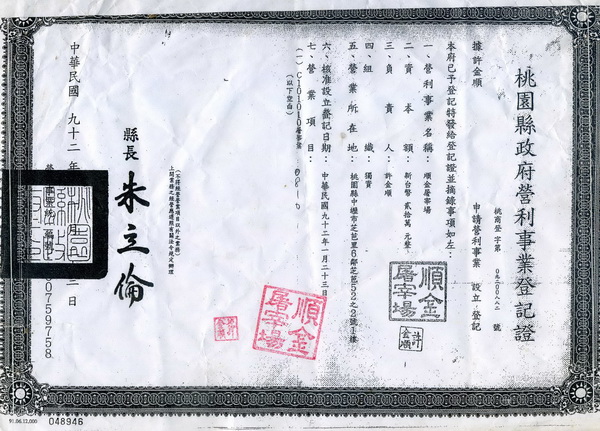 桃園縣政府營利事業登記證
桃商登字第 號
據許金順 申請營利事業 設立 登記
本府已予登記特發給登記證並摘錄事項如左：
一、營利事業名稱：順金屠宰場
二、資本額：新台幣 貳拾萬 元整
三、負責人：許金順
四、組織：獨資
五、營業所在地：桃園縣中壢市芝芭里6鄰芝芭52之2號1樓
六、核准設立登記日期：中華民國九十二年一月二十三日
七、營業項目：
(一) C101010屠宰業
(以下空白)
順金
屠宰場
許
金順
順金
屠宰場
許
金順
縣長 朱立倫
中華民國 九十二年
三日
00750758
91.06.12,000
048946